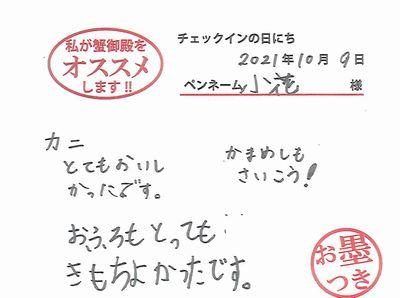 私が蟹御殿を
オススメ
します!!
チェックインの日にち
2021年10月9日
ペンネーム 小花 様
カニ
とてもおいし
かったです。
かまめしも
さいこう!
おふろもとっても
きもちよかったです。
お墨
つき